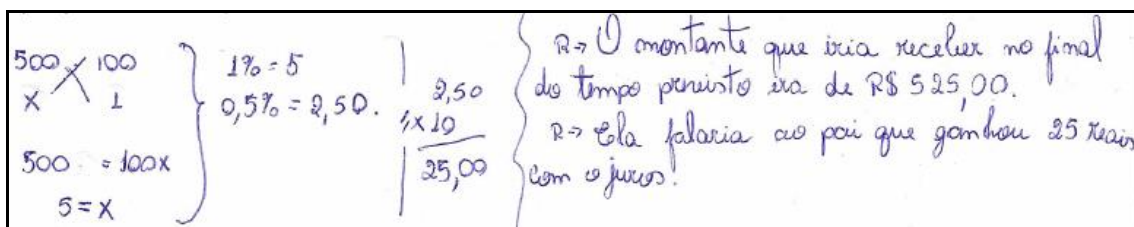 500 100
x 1
500 = 100x
5 = x
1% = 5
0,5% = 2,50.
2,50
x 10
25,00
R→ O montante que iria receber no final
do tempo previsto era de R$ 525,00.
R→ Ela falaria ao pai que ganhou 25 reais
com o juros.